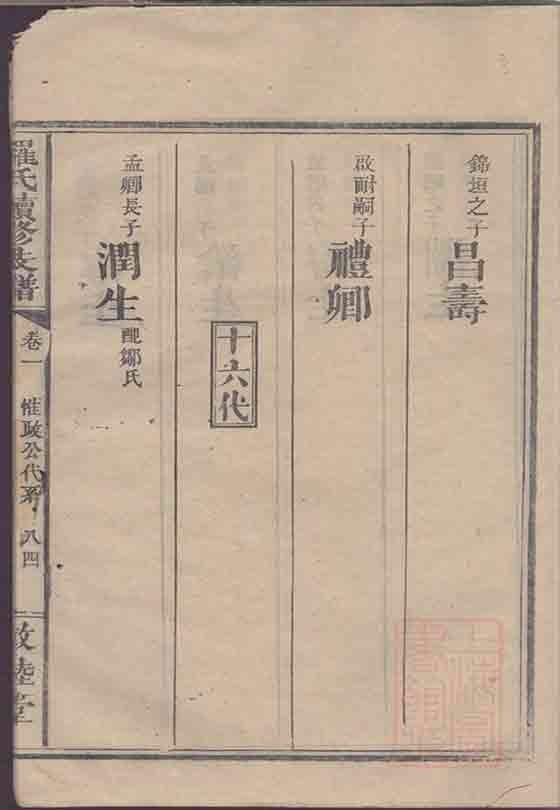 錦垣之子 昌壽
啟耐嗣子 禮卿
十六代
孟卿長子 潤生 配鄒氏
羅氏續修支譜 卷一 惟政公代系 八四 敦陸堂